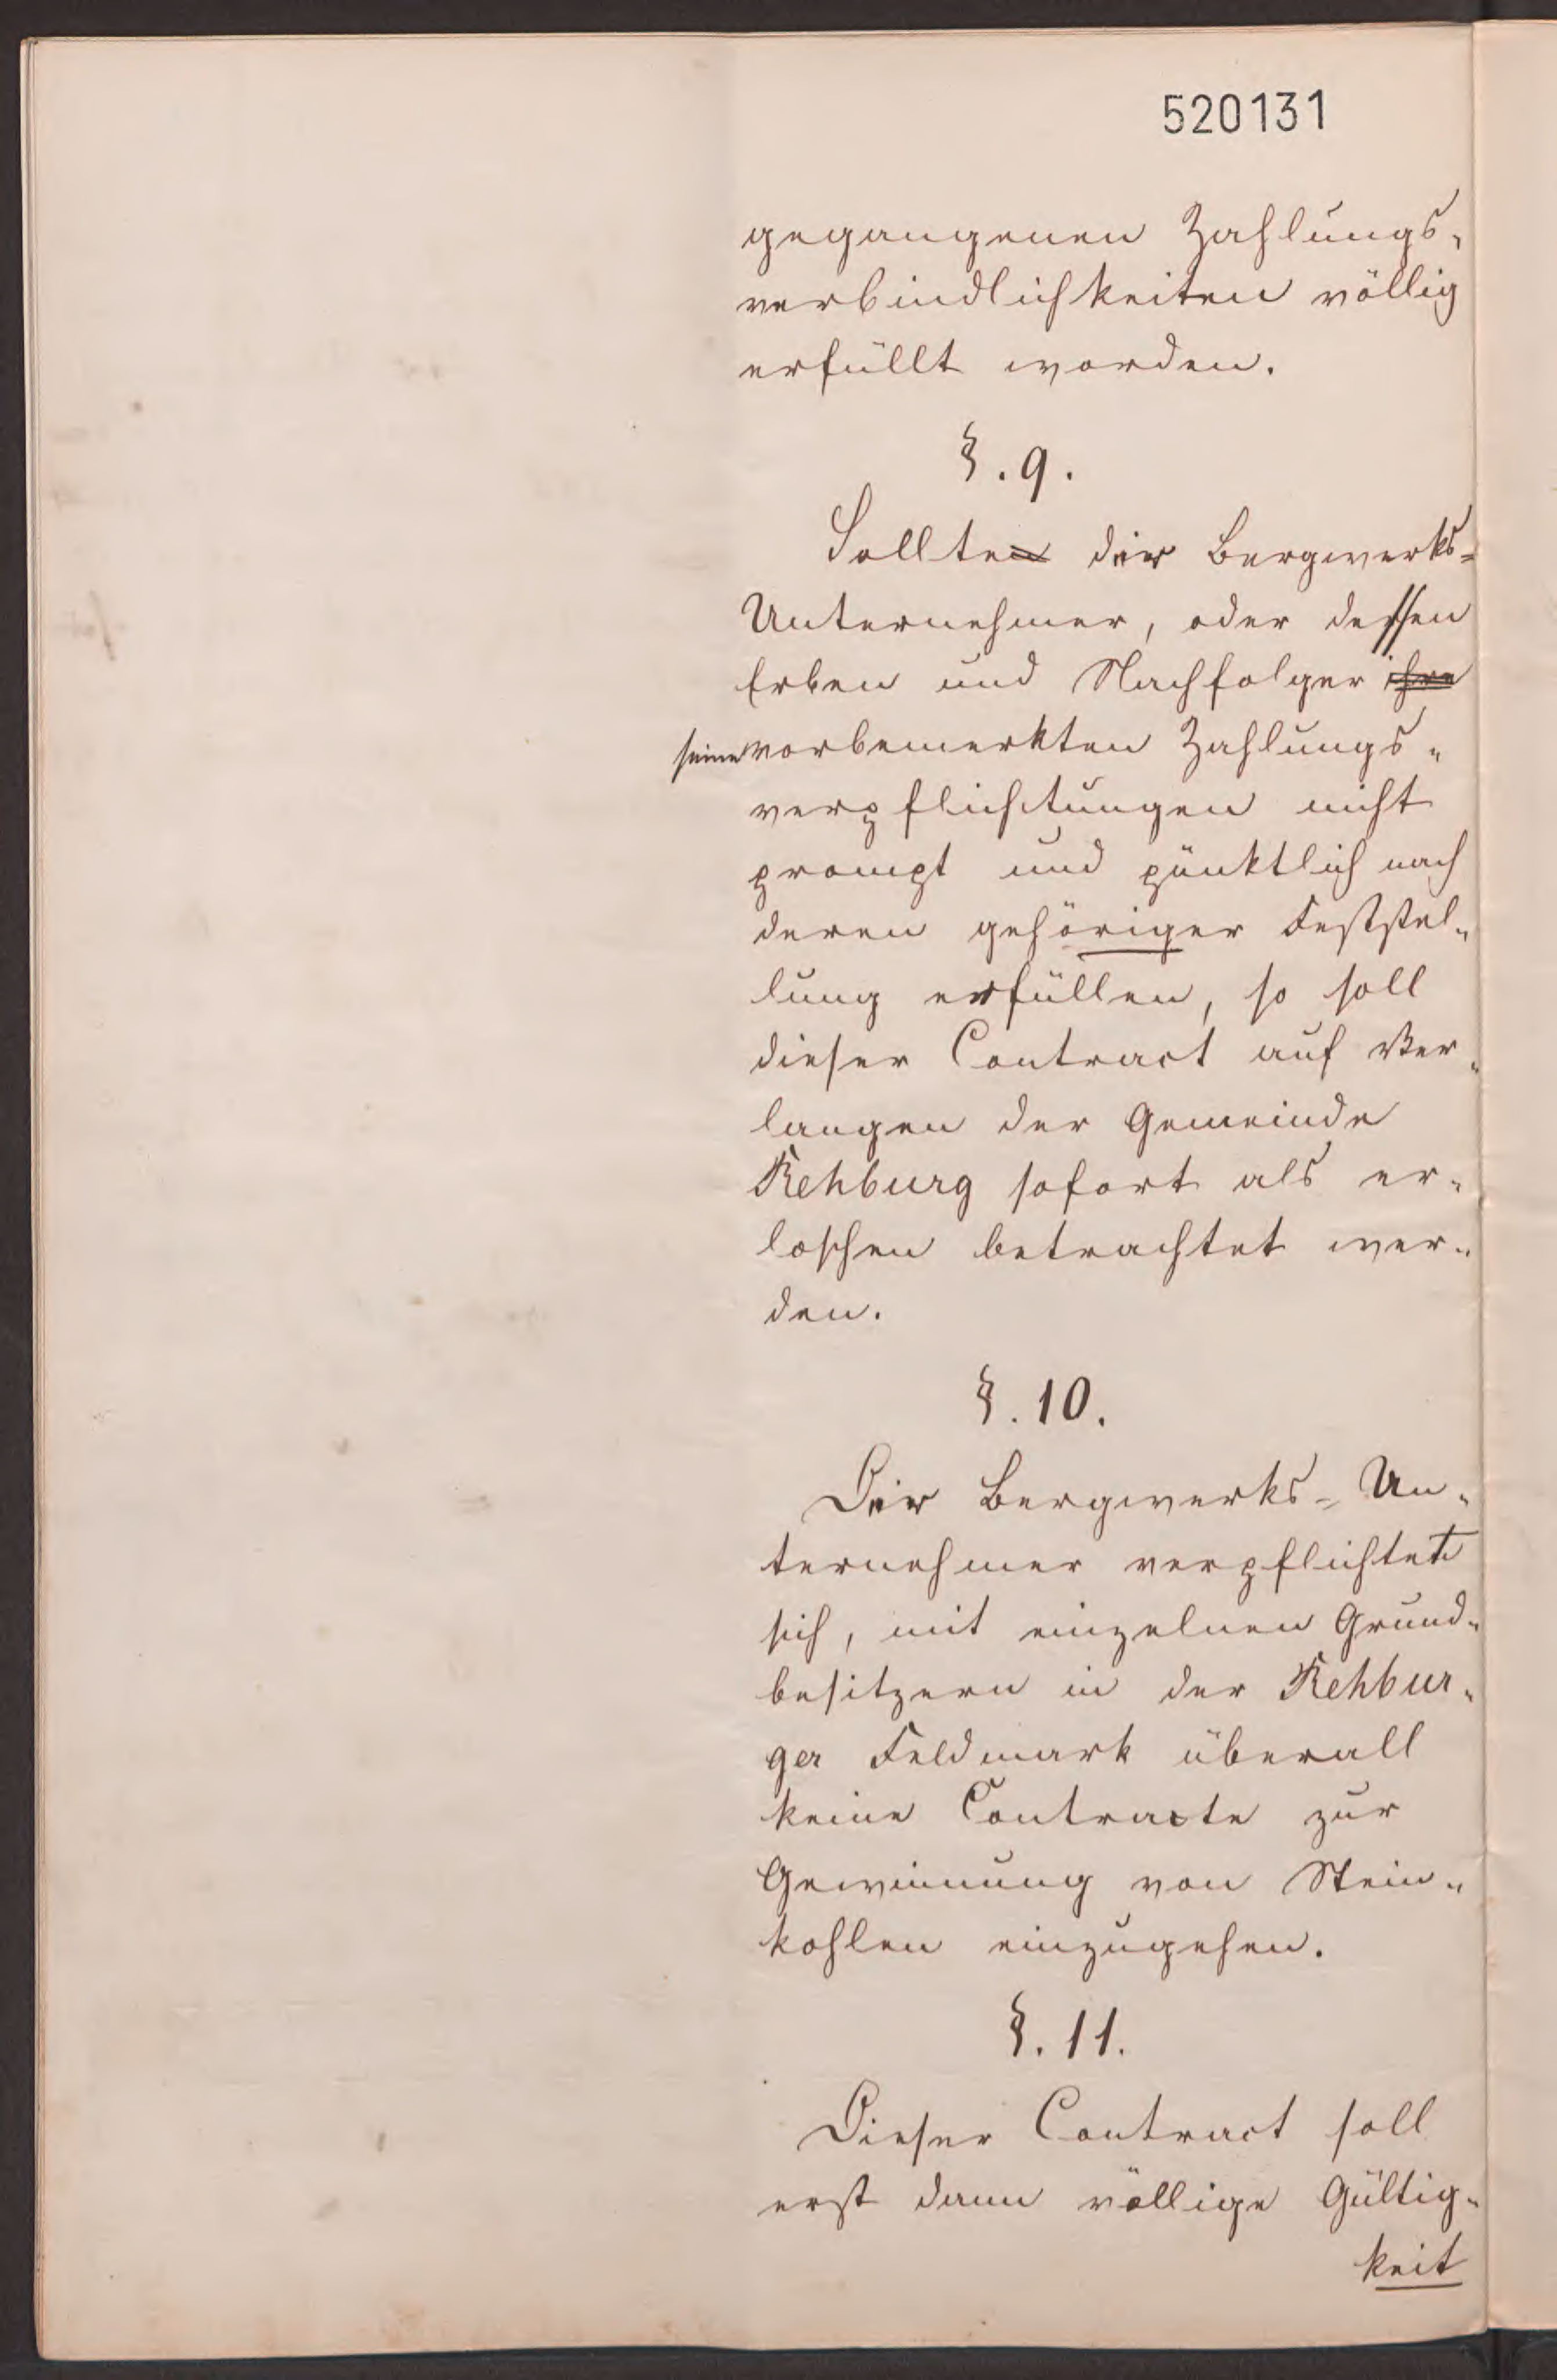 520131
gegangenen Zahlungs-
verbindlichkeiten völlig
erfüllt worden.
§. 9.
Sollten der Bergwerks-
Unternehmer, oder dessen
Erben und Nachfolger ihre
seine vorbemerkten Zahlungs-
verpflichtungen nicht
prompt und pünktlich nach
deren gehöriger Feststel-
lung erfüllen, so soll
dieser Contract auf Ver-
langen der Gemeinde
Rehburg sofort als er-
loschen betrachtet wer-
den.
§. 10.
Der Bergwerks-Un-
ternehmer verpflichtet
sich, mit einzelnen Grund-
besitzern in der Rehbur-
ger Feldmark überall
keine Contracte zur
Gewinnung von Stein-
kohlen einzugehen.
§. 11.
Dieser Contract soll
erst dann völlige Gültig-
keit